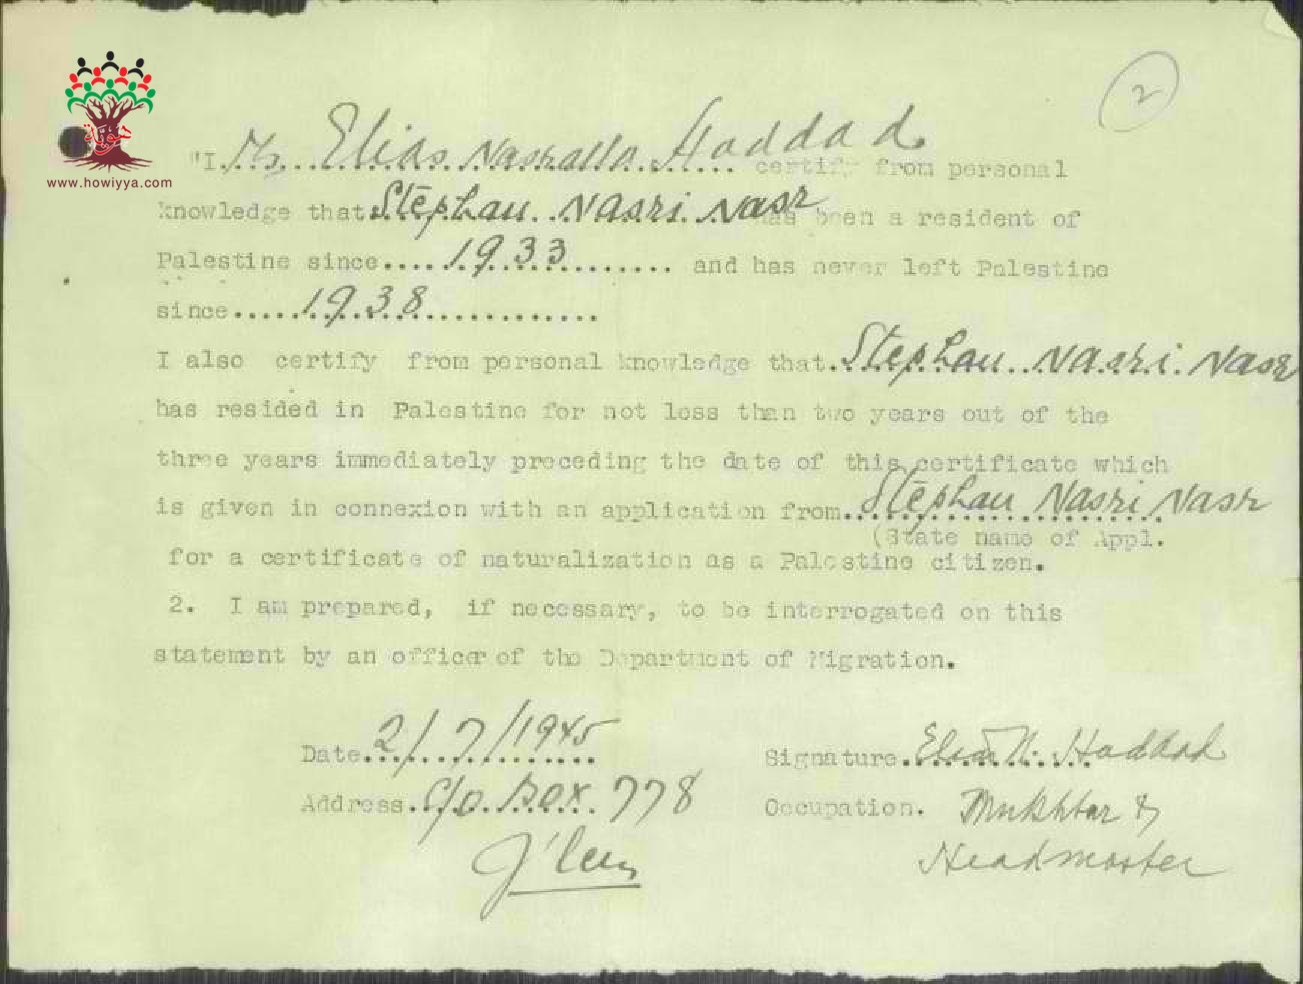 2
هوية
www.howiyya.com
"I. Mr. Elias Nasralla Haddad certify from personal
knowledge that Stephan Nasri Nasr has been a resident of
Palestine since.... 1933 ........ and has never left Palestine
since..... 1938 ............
I also certify from personal knowledge that. Stephan Nasri Nasr
has resided in Palestine for not less than two years out of the
three years immediately preceding the date of this certificate which
is given in connexion with an application from.. Stephan Nasri Nasr
(State name of Appl.
for a certificate of naturalization as a Palestine citizen.
2. I am prepared, if necessary, to be interrogated on this
statement by an officer of the Department of Migration.
Date 2/7/1945 Signature. Elias N. Haddad
Address. C/o Box. 778 Occupation. Mukhtar &
J'lem Headmaster